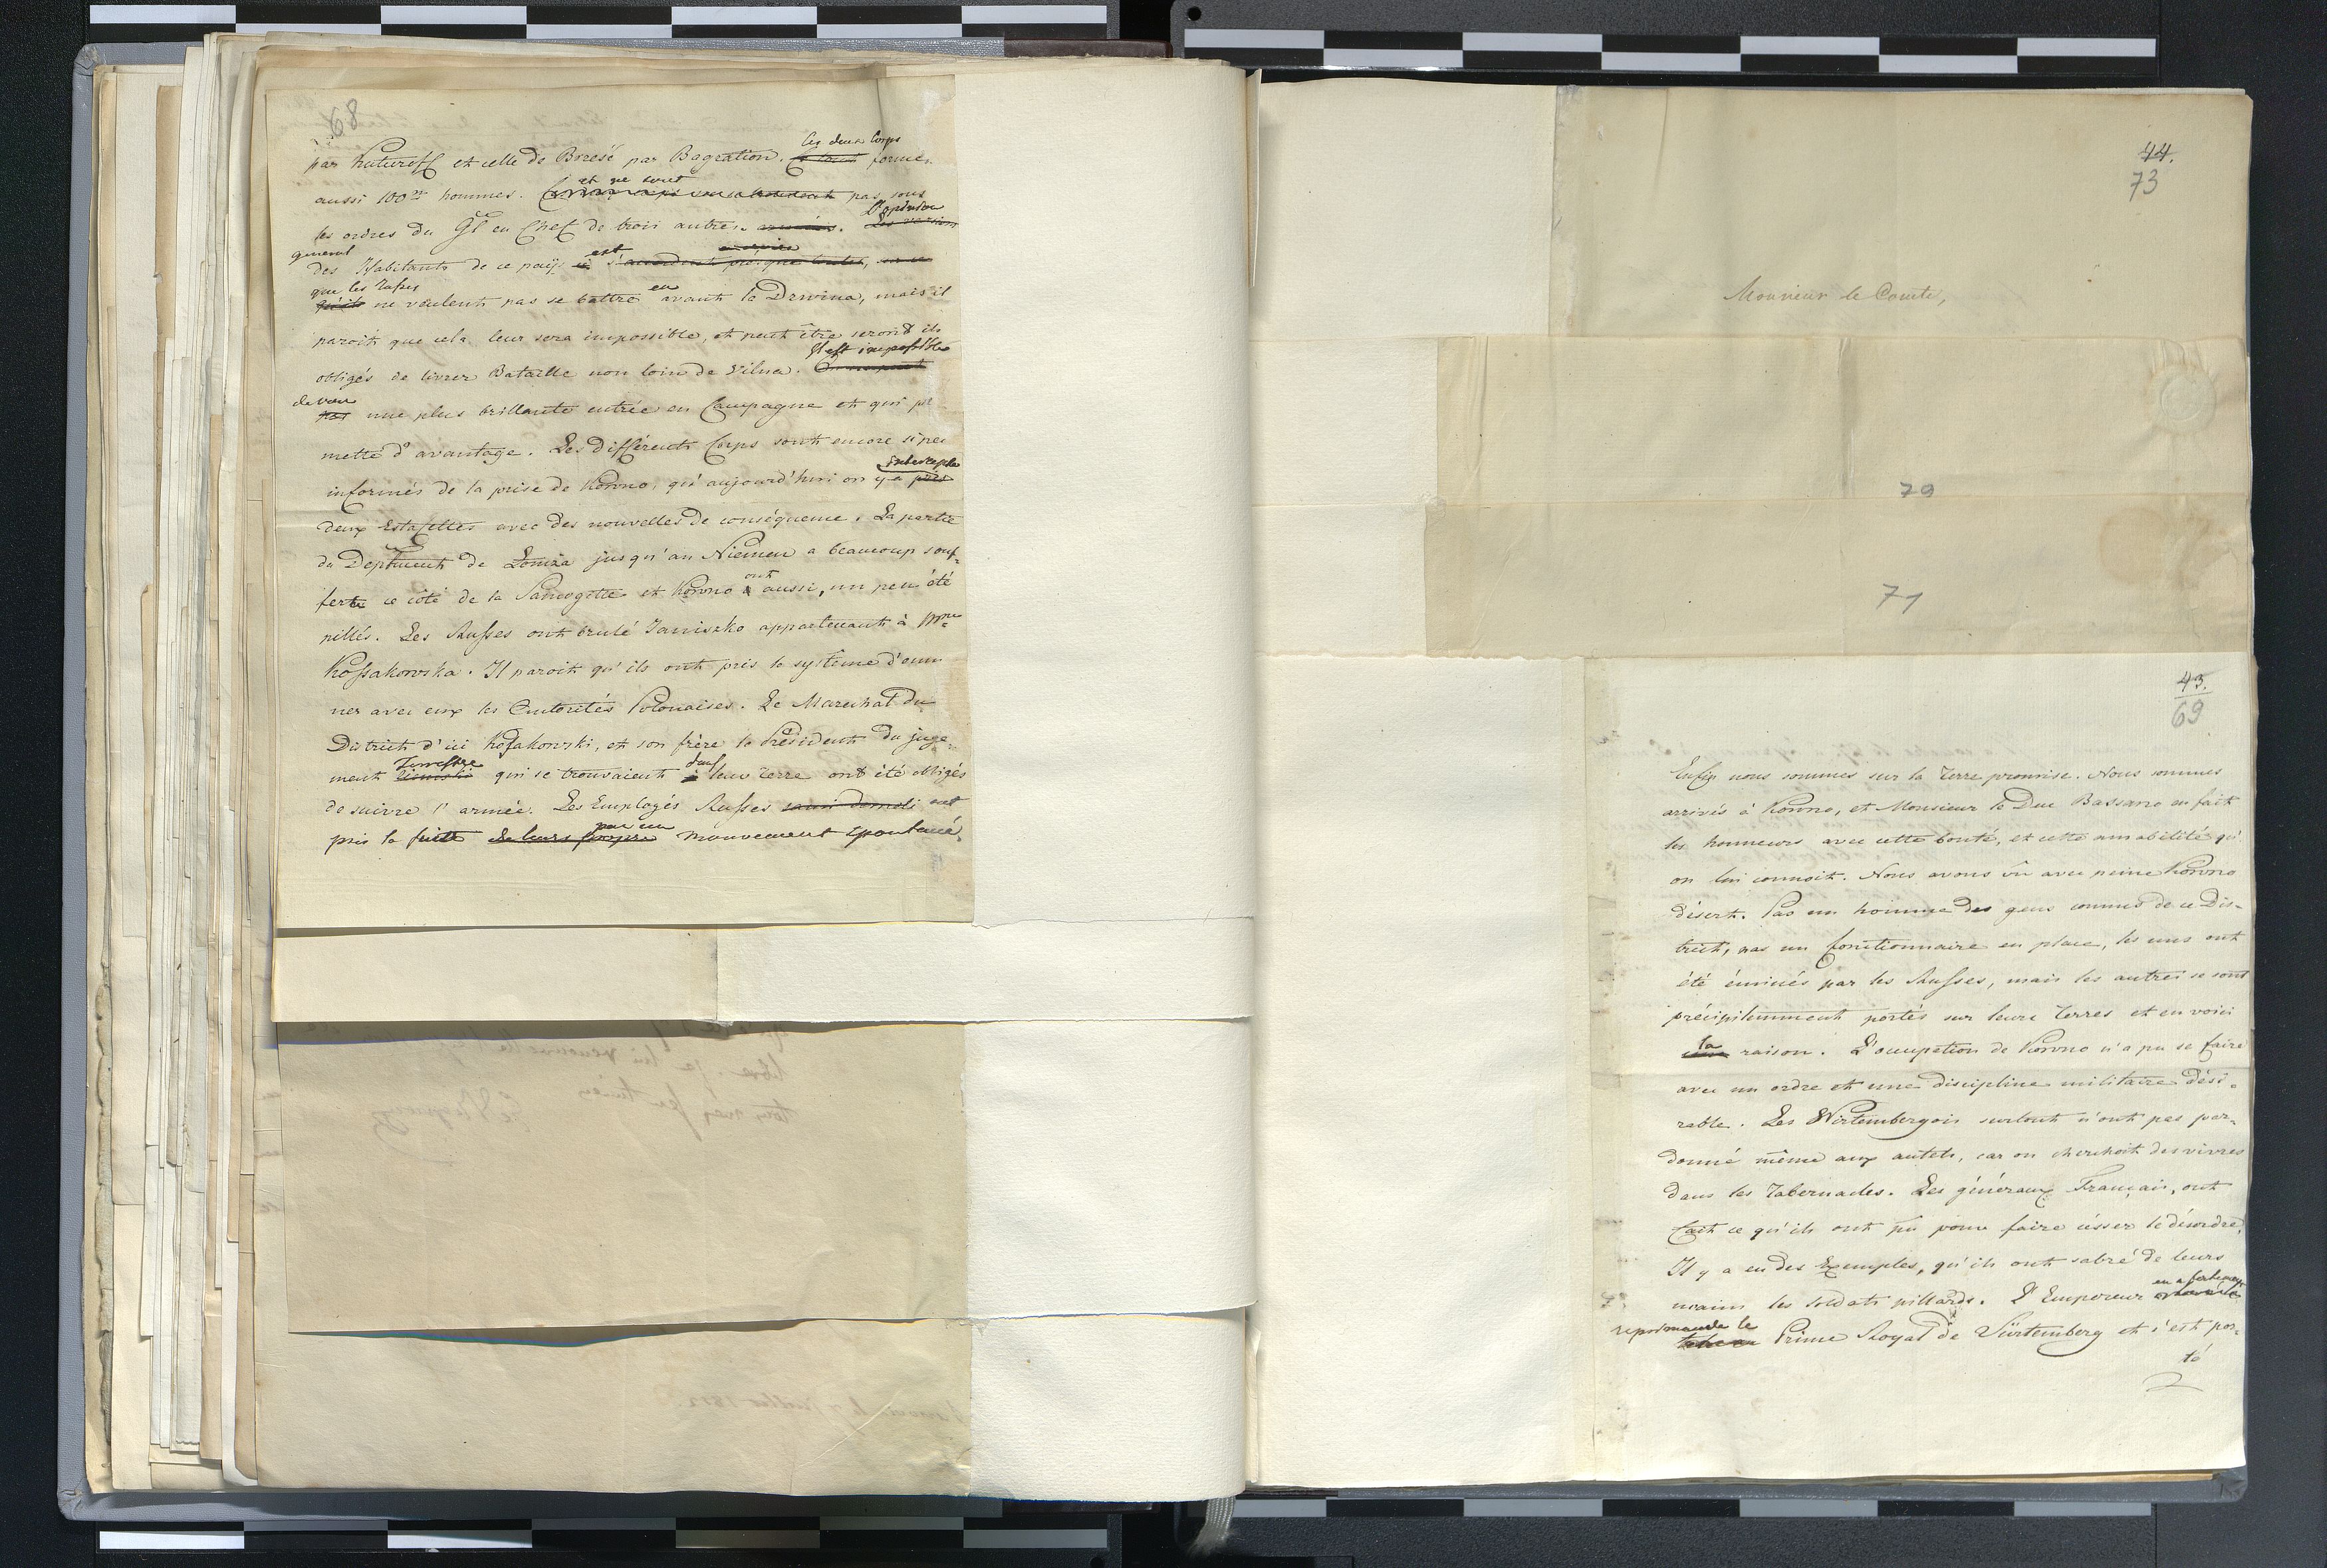 68
par Kutuzoff et celle de Brześć par Bagration. Ces deux Corps forme.
aussi 100m hommes. et ne sont pas sous
les ordres du Gl en Chef de trois autres. L'opinion
general des Habitants de ce païs est
que les Russes ne veulent pas se battre en avant la Drwina, mais il
paroit que cela leur sera impossible, et peut être seront ils
obligés de livrer Bataille non loin de Vilna. Il est impossible
de voir une plus brillante entrée en Campagne et qui pro
mette d'avantage. Les différents Corps sont encore si peu
informés de la prise de Kowno, qu'aujourd'hui on y a intercepté
deux Estafettes avec des nouvelles de conséquence. La partie
du Deptment de Łomza jusqu'au Niemen a beaucoup souf-
fert ce côté de la Samogitie et Kowno ont aussi, un peu été
pillés. Les Russes ont brulé Janiszko appartenant à Mme
Kossakowska. Il paroit qu'ils ont pris le systême d'emme
ner avec eux les Autorités Polonaises. Le Marechal du
District d'ici Kossakowski, et son frère le Président du juge-
ment Terrestre qui se trouvaient dans leur terre ont été obligés
de suivre l'armée. Les Employés Russes ont
pris la fuite par un mouvement spontané.
44.
73
Monsieur le Comte,
70
71
43.
69
Enfin nous sommes sur la Terre promise. Nous sommes
arrivés à Kowno, et Monsieur le Duc Bassano en fait
les honneurs avec cette bonté, et cette amabilité qu'
on lui connoit. Nous avons vu avec peine Kowno
désert. Pas un homme des gens connus de ce Dis-
trict, pas un fonctionnaire en place, les uns ont
été emmenés par les Russes, mais les autres se sont
précipitemment portés sur leurs Terres et en voici
la raison. L'occupation de Kowno n'a pu se faire
avec un ordre et une discipline militaire dési-
rable. Les Wirtembergois surtout n'ont pas par-
donné même aux autels, car on cherchoit des vivres
dans les Tabernacles. Les généraux Français, ont
fait ce qu'ils ont pu pour faire cesser le désordre,
Il y a eu des Exemples, qu'ils ont sabré de leurs
mains les soldats pillards. L'Empereur en a fortement
reprimandé le Prince Royal de Würtemberg et s'est por-
té